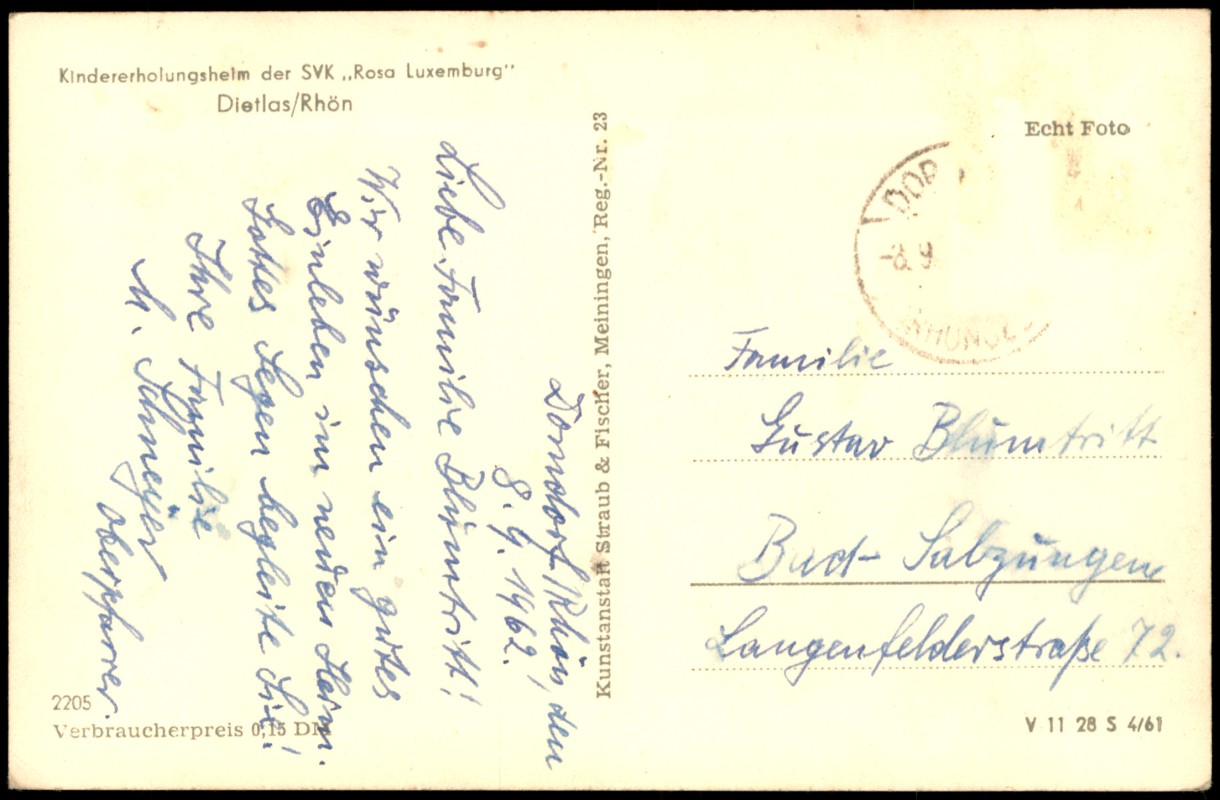 Kindererholungsheim der SVK „Rosa Luxemburg"
Dietlas/Rhön
Dorndorf/Rhön, den
8. 9. 1962.
Liebe Familie Blumtritt!
Wir wünschen ein gutes
Einleben im neuen Heim.
Gottes Segen begleite Sie!
Ihre Familie
Oberpfarrer.
2205
Verbraucherpreis 0,15 DM
Kunstanstalt Straub & Fischer, Meiningen, Reg.-Nr. 23
Echt Foto
DOR
-8. 9
Familie
Gustav Blumtritt
Bad-Salzungen
Langenfelderstraße 72.
V 11 28 S 4/61